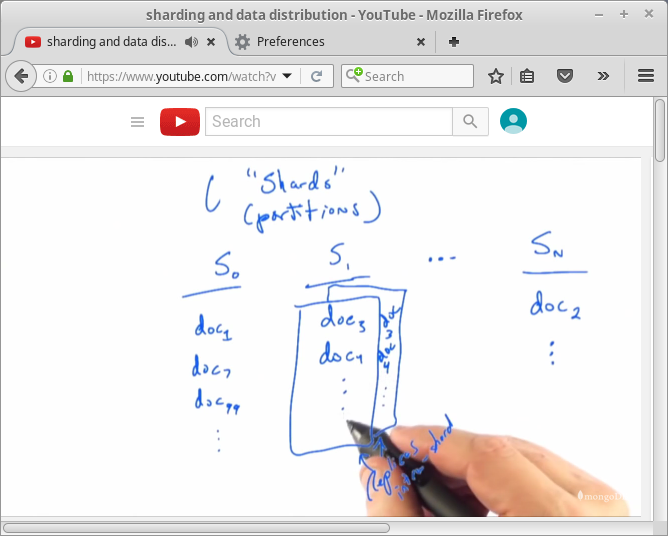 sharding and data distribution - YouTube - Mozilla Firefox
sharding and data dis...
Preferences
https://www.youtube.com/watch?v
Search
Search
"Shards"
(partitions)
S0
S1
...
SN
doc1
doc7
doc99
doc3
doc4
doc
3
doc
4
doc2
replicas
shard
mongoD